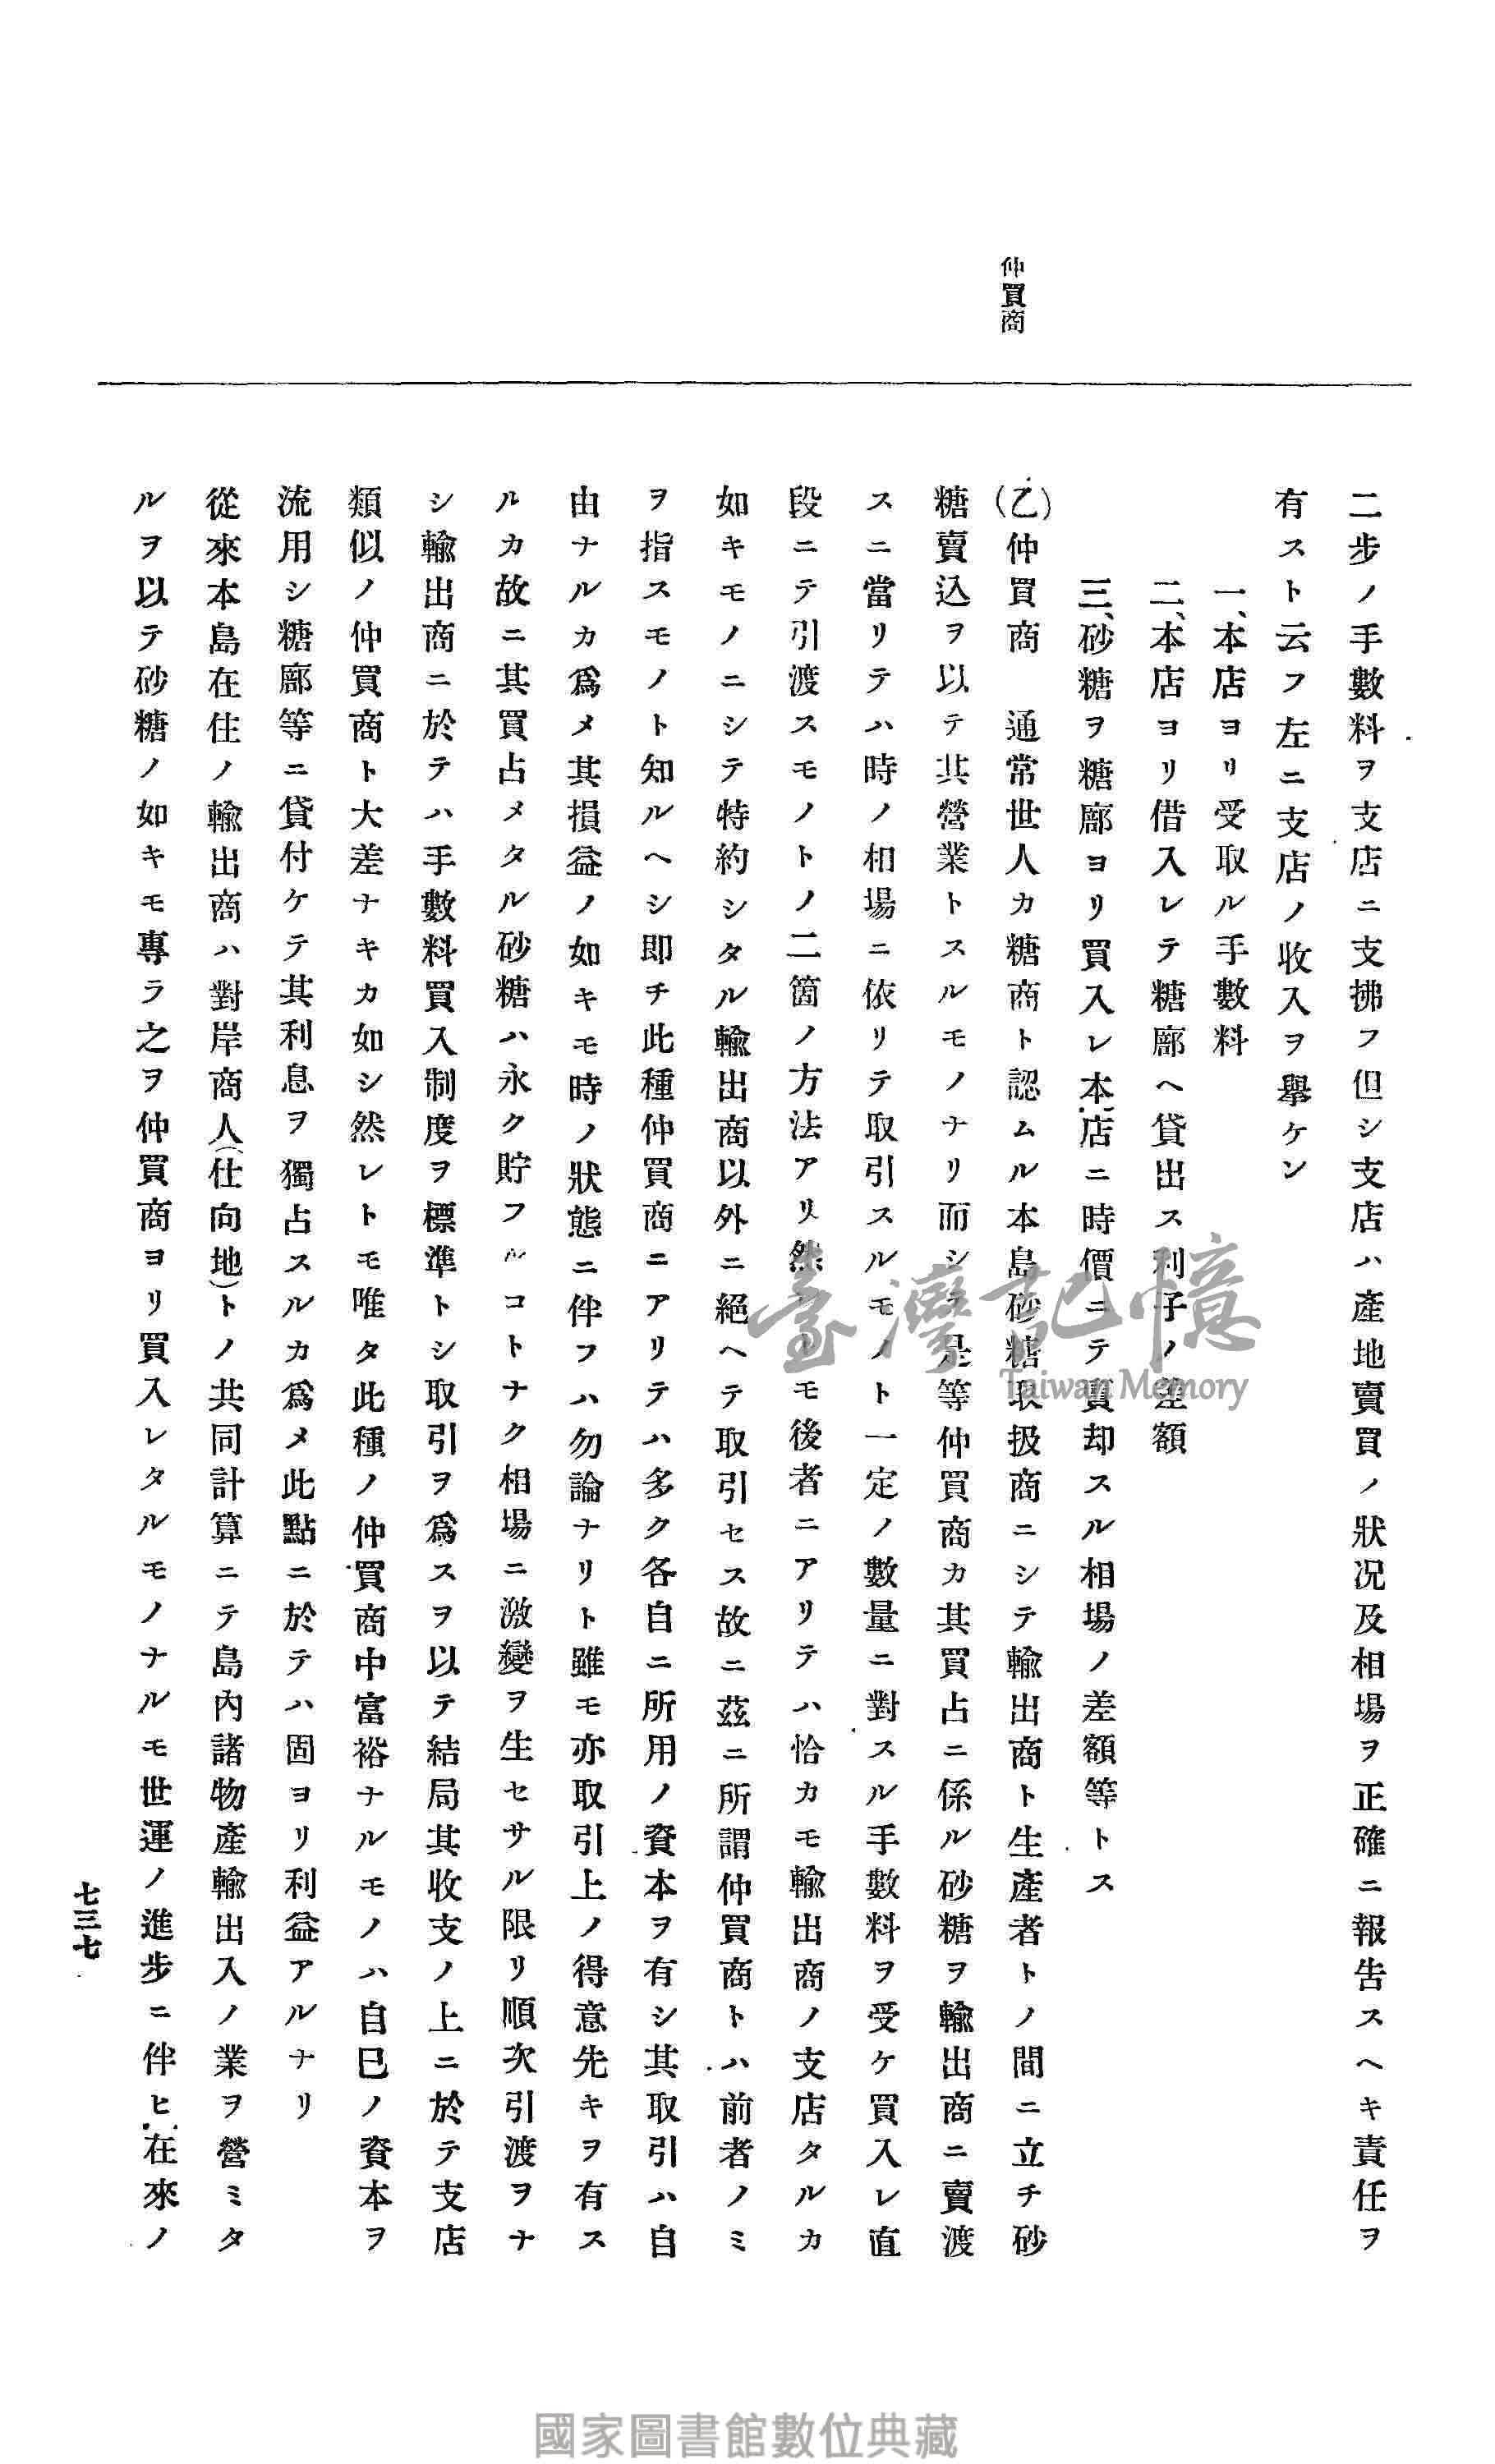 仲買商
二步ノ手數料ヲ支店ニ支拂フ但シ支店ハ產地賣買ノ狀況及相場ヲ正確ニ報告スヘキ責任ヲ
有スト云フ左ニ支店ノ收入ヲ擧ケン
一、本店ヨリ受取ル手數料
二、本店ヨリ借入レテ糖廍ヘ貸出ス利子ノ差額
三、砂糖ヲ糖廍ヨリ買入レ本店ニ時價ニテ賣却スル相場ノ差額等トス
(乙)仲買商 通常世人カ糖商ト認ムル本島砂糖取扱商ニシテ輸出商ト生產者トノ間ニ立チ砂
糖賣込ヲ以テ其營業トスルモノナリ而シテ是等仲買商カ其買占ニ係ル砂糖ヲ輸出商ニ賣渡
スニ當リテハ時ノ相場ニ依リテ取引スルモノト一定ノ數量ニ對スル手數料ヲ受ケ買入レ直
段ニテ引渡スモノトノ二箇ノ方法アリ然レトモ後者ニアリテハ恰カモ輸出商ノ支店タルカ
如キモノニシテ特約シタル輸出商以外ニ絕ヘテ取引セス故ニ茲ニ所謂仲買商トハ前者ノミ
ヲ指スモノト知ルヘシ即チ此種仲買商ニアリテハ多ク各自ニ所用ノ資本ヲ有シ其取引ハ自
由ナルカ爲メ其損益ノ如キモ時ノ狀態ニ伴フハ勿論ナリト雖モ亦取引上ノ得意先キヲ有ス
ルカ故ニ其買占メタル砂糖ハ永ク貯フルコトナク相場ニ激變ヲ生セサル限リ順次引渡ヲナ
シ輸出商ニ於テハ手數料買入制度ヲ標準トシ取引ヲ爲スヲ以テ結局其收支ノ上ニ於テ支店
類似ノ仲買商ト大差ナキカ如シ然レトモ唯タ此種ノ仲買商中富裕ナルモノハ自己ノ資本ヲ
流用シ糖廍等ニ貸付ケテ其利息ヲ獨占スルカ爲メ此點ニ於テハ固ヨリ利益アルナリ
從來本島在住ノ輸出商ハ對岸商人(仕向地)トノ共同計算ニテ島內諸物產輸出入ノ業ヲ營ミタ
ルヲ以テ砂糖ノ如キモ專ラ之ヲ仲買商ヨリ買入レタルモノナルモ世運ノ進步ニ伴ヒ在來ノ
七三七
臺灣記憶
Taiwan Memory
國家圖書館數位典藏